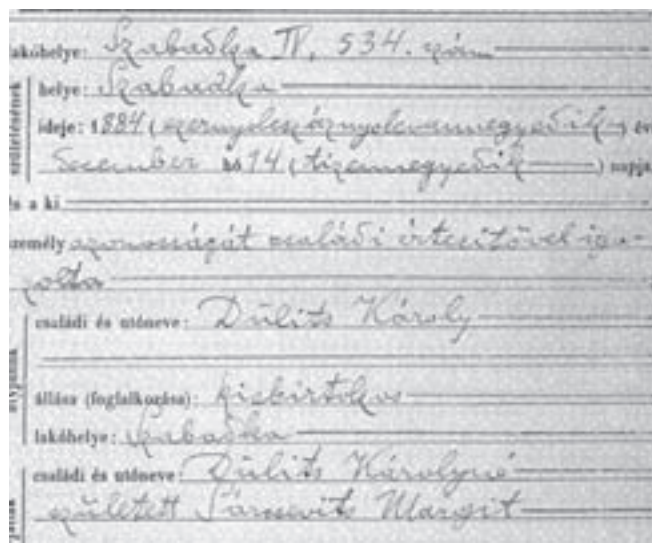 lakóhelye: Szabadka IV, 534. szám
születésének
helye: Szabadka
ideje: 1884 (ezernyolcszáznyolcvannegyedik) év
December hó 14 (tizennegyedik) napja
és a ki
személy azonosságát családi értesítővel iga-
zolta
atyjának
családi és utóneve: Dulits Károly
állása (foglalkozása): kisbirtokos
lakóhelye: Szabadka
családi és utóneve: Dulits Károlyné
született Margit